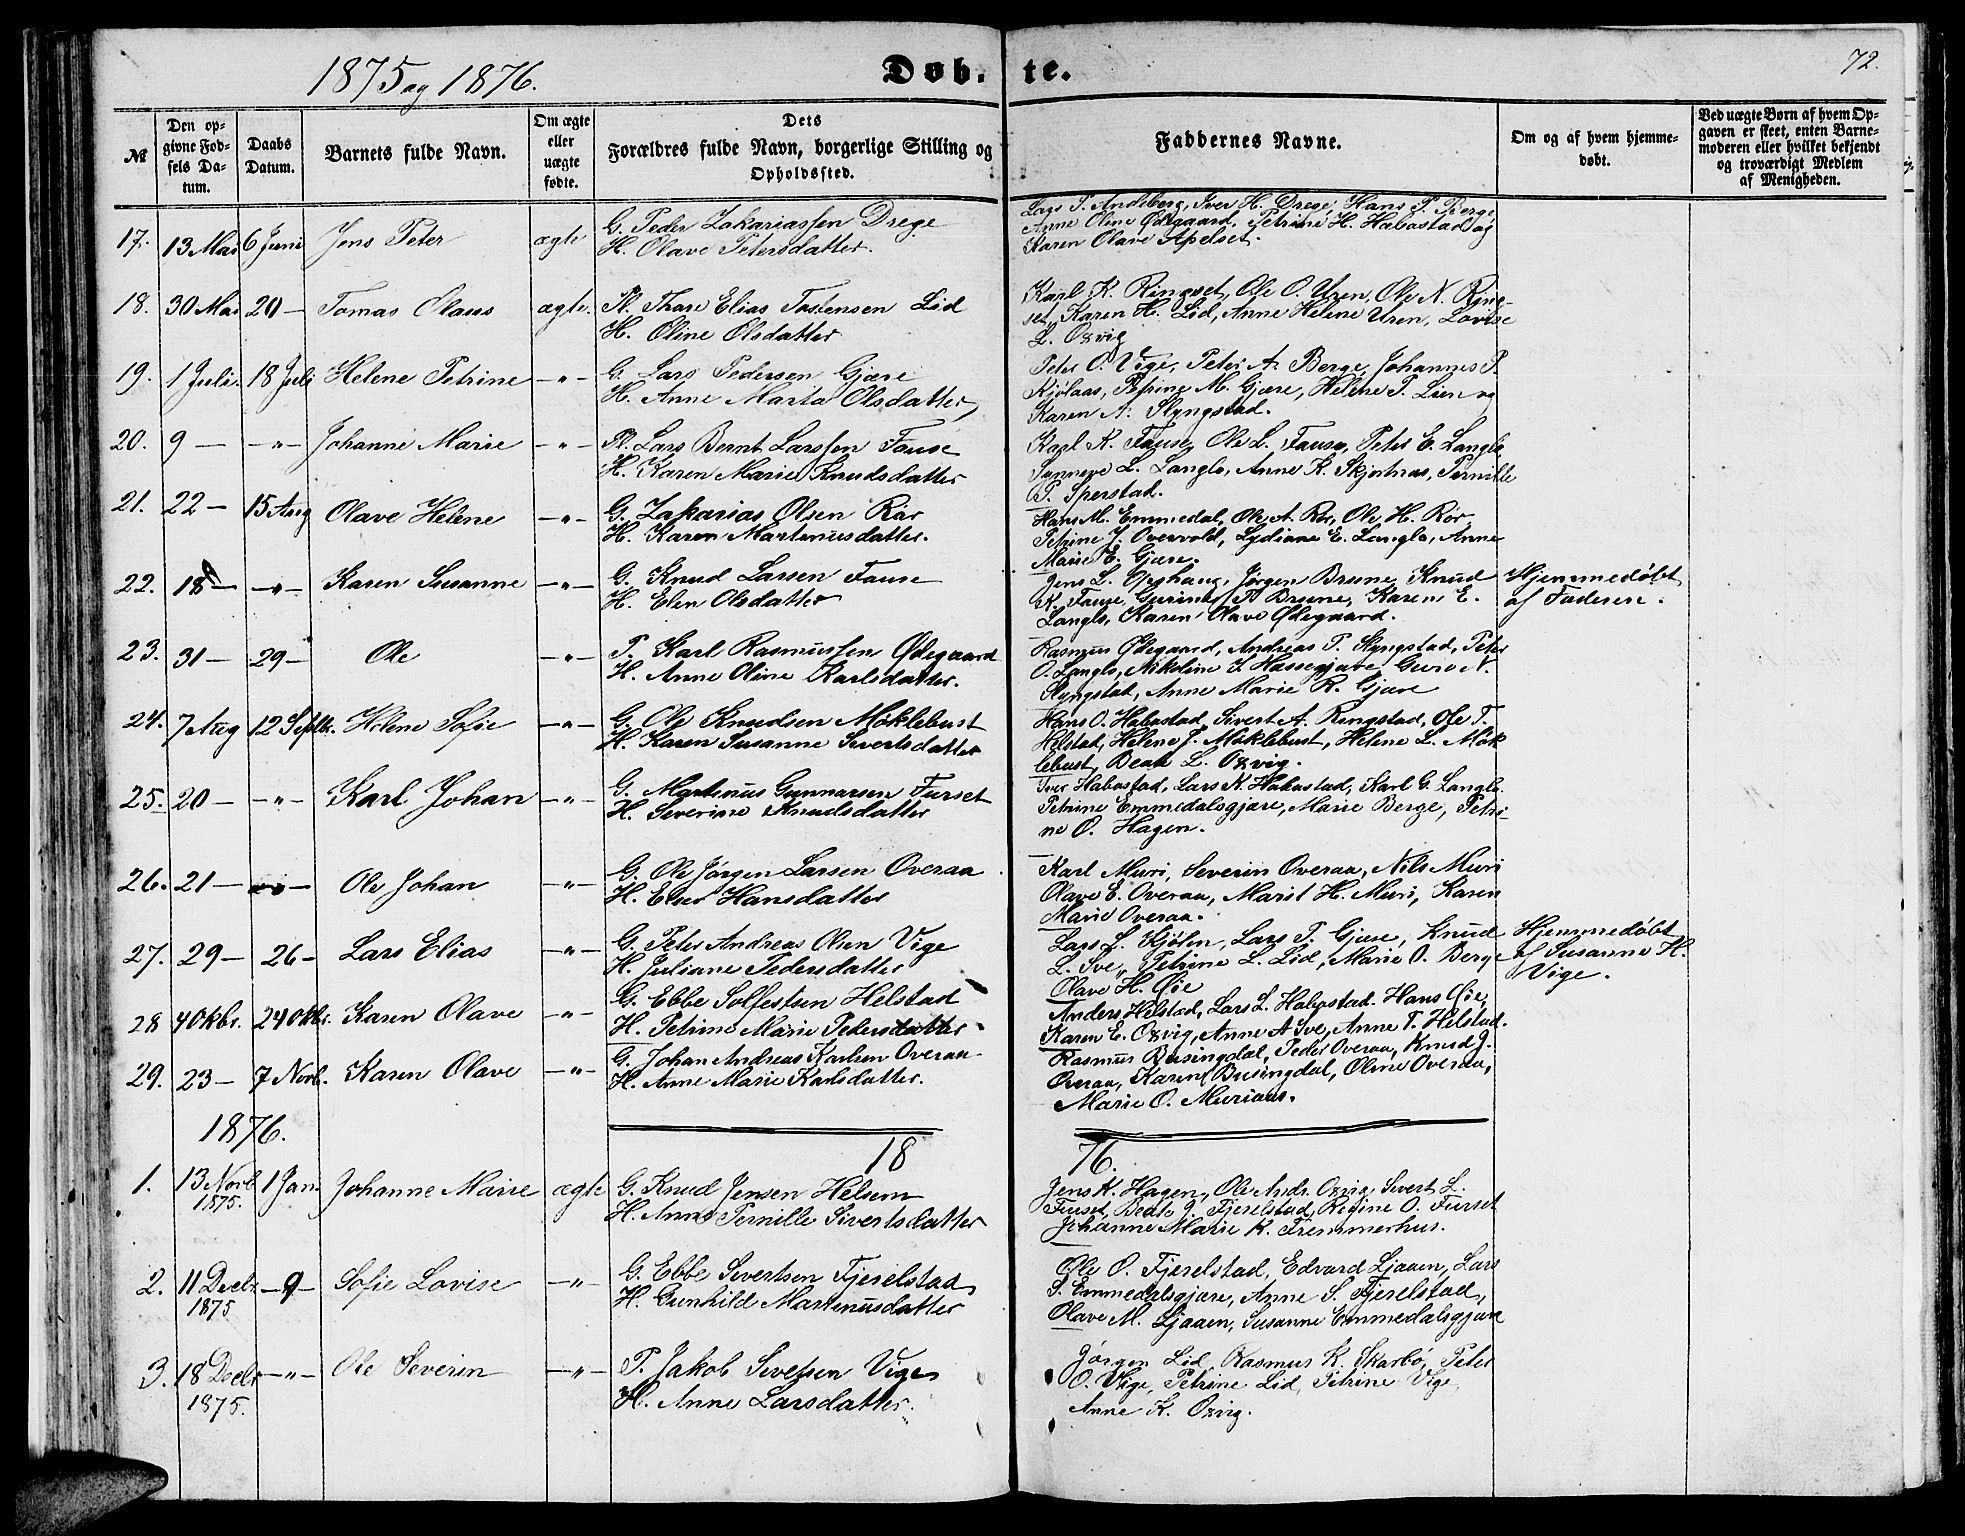 1875 og 1876.
Døb-te.
72.
№
Den opgivne Fødsels Datum.
Daabs Datum.
Barnets fulde Navn.
Om ægte eller uægte fødte.
Dets Forældres fulde Navn, borgerlige Stilling og Opholdssted.
Faddernes Navne.
Om og af hvem hjemmedøbt.
Ved uægte Børn af hvem Opgaven er skeet, enten Barnemoderen eller hvilket bekjendt og troværdigt Medlem af Menigheden.
17. 13 Mai 6 Juni Jens Peter ægte G. Peder Zakariassen Drege
H. Olave Petersdatter.
Lars T. Andsberg, Iver H. Drege, Hans P. Berge
Anne Oline Ødegaard, Petrine H. Habostad og
Karen Olave Apelset.
18. 30 Mai 20 — Tomas Olaus ægte. Pl. Thare Elias Tostensen Lid
H. Oline Olsdatter
Karl K. Ringset, Ole O. Uren, Ole N. Ring-
set, Karen H. Lid, Anne Helene Uren, Lovise
L. Oxvig
19. 1 Juli. 18 Juli Helene Petrine —"— G. Lars Pedersen Gjære
H. Anne Marta Olsdatter
Peter O. Vige, Peter A. Berge, Johannes P.
Kjølaas, Petrine M. Gjære, Helene T. Lien og
Karen A. Slyngstad.
20. 9 — —"— Johanne Marie —"— Pl. Lars Bernt Larssen Fause
H. Karen Marie Knudsdatter
Karl K. Fause, Ole L. Fause, Peter E. Langlo
Sanneve L. Langlo, Anne K. Skjortnas, Pernille
P. Sperstad.
21. 22 — 15 Aug Olave Helene —"— G. Zakarias Olsen Rør
H. Karen Martinusdatter.
Hans M. Emmedal, Ole A. Rør, Ole H. Rør
Petrine J. Overvold, Lydiane E. Langlo, Anne
Marie E. Gjære.
22. 18 — —"— Karen Susanne —"— G. Knud Larsen Fause
H. Elen Olsdatter
Jens L. Opshaug, Jørgen Brune, Knud
K. Fause, Gurine P. Brune, Karen E.
Langlo, Karen Olave Ødegaard.
Hjemmedøbt
af Faderen.
23. 31 — 29 — Ole —"— P. Karl Rasmussen Ødegaard
H. Anne Oline Karlsdatter.
Rasmus Ødegaard, Andreas P. Slyngstad, Peter
O. Langlo, Nikoline J. Hassegjære Guro N.
Slyngstad, Anne Marie R. Gjære
24. 7 Aug 12 Septbr. Helene Sofie —"— G. Ole Knudsen Moklebust
H. Karen Susanne Sivertsdatter
Hans O. Habostad, Sivert A. Ringstad, Ole T.
Helstad, Helene J. Moklebust, Helene L. Mok
lebust, Beate L. Oxvig.
25. 20 — —"— Karl Johan —"— G. Martinus Gunnarsen Furset
H. Severine Knudsdatter
Iver Habostad, Lars N. Habostad, Karl G. Langlo.
Petrine Emmedalsgjære, Marie Berge, Petri-
ne O. Hagen.
26. 21 — —"— Ole Johan —"— G. Ole Jørgen Larsen Overaa
H. Else Hansdatter
Karl Muri, Severin Overaa, Nils Muri
Olave E. Overaa, Marit H. Muri, Karen
Marie Overaa.
27. 29 — 26 — Lars Elias —"— G. Peter Andreas Olsen Vige
H. Juliane Pedersdatter
Lars L. Kjølen, Lars T. Gjære, Knud
L. Sve, Petrine L. Lid, Marie O. Berge
Olave H. Øie
Hjemmedøbt
af Susanne H.
Vige.
28 4 Oktbr. 24 Oktbr. Karen Olave —"— G. Ebbe Solfestsen Helstad
H. Petrine Marie Petersdatter
Anders Helstad, Lars L. Habostad. Hans Øie,
Karen E. Oxvig, Anne A Sve, Anne T. Helstad.
29. 23 — 7 Novb. Karen Olave —"— G. Johan Andreas Karlsen Overaa
H. Anne Marie Karlsdatter.
Rasmus Busingdal, Peder Overaa, Knud J.
Overaa, Karen Busingdal, Oline Overaa,
Marie O. Muriaas.
1876.
18 76.
1. 13 Novb 1875. 1 Jan. Johanne Marie ægte G. Knud Jensen Helsem
H. Anne Pernille Sivertsdatter
Jens K. Hagen, Ole Andr. Oxvig, Sivert L.
Furset, Beate J. Fjerelstad, Regine O. Furset
Johanne Marie K. Fremmerhus.
2. 11 Decbr 1875 —9— Sofie Lovise —"— G. Ebbe Sivertsen Fjerelstad
H. Gunhild Martinusdatter
Ole O. Fjerelstad, Edvard Ljaaen, Lars
S. Emmedalsgjære, Anne S. Fjerelstad,
Olave M. Ljaaen, Susanne Emmedalsgjære
3. 18 Decbr 1875. —"— Ole Severin —"— P. Jakob Sivertsen Vige
H. Anne Larsdatter.
Jørgen Lid, Rasmus K. Skarbø, Peter
O. Vige, Petrine Lid, Petrine Vige,
Anne K. Oxvig.